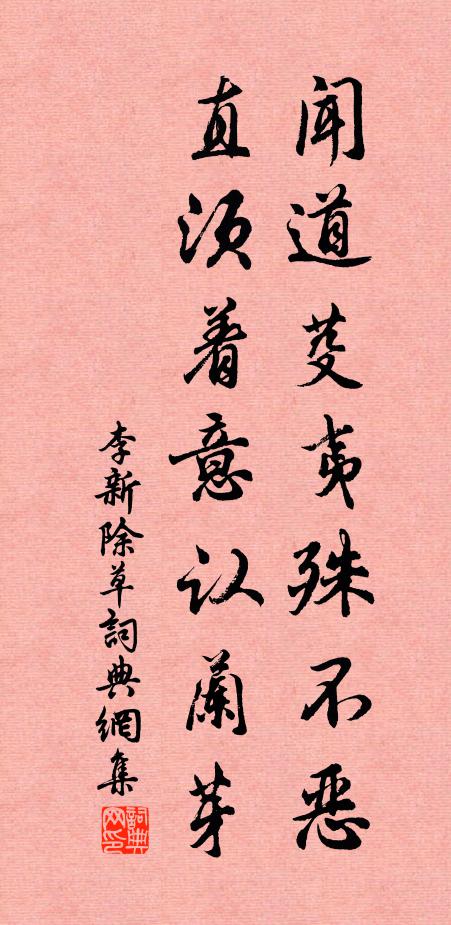 闻道芟夷殊不恶
直须着意认兰芽
李新除草詞典網集
詞典网印